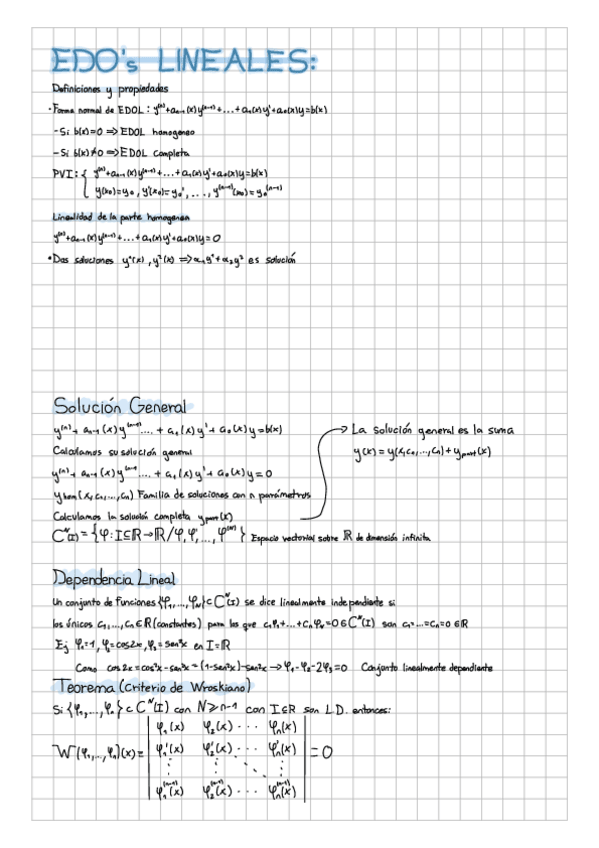 EDO's LINEALES:
Definiciones y propiedades
• Forma normal de EDOL: y⁽ⁿ⁾+aₙ₋₁(x)y⁽ⁿ⁻¹⁾+...+a₁(x)y'+a₀(x)y=b(x)
- Si b(x)=0 ⇒ EDOL homogenea
- Si b(x)≠0 ⇒ EDOL completa
PVI: { y⁽ⁿ⁾+aₙ₋₁(x)y⁽ⁿ⁻¹⁾+...+a₁(x)y'+a₀(x)y=b(x)
y(x₀)=y₀, y'(x₀)=y₀', ..., y⁽ⁿ⁻¹⁾(x₀)=y₀⁽ⁿ⁻¹⁾
Linealidad de la parte homogenea
y⁽ⁿ⁾+aₙ₋₁(x)y⁽ⁿ⁻¹⁾+...+a₁(x)y'+a₀(x)y=0
• Dos soluciones y¹(x), y²(x) ⇒ α₁y¹+α₂y² es solución
Solución General
y⁽ⁿ⁾+ aₙ₋₁(x)y⁽ⁿ⁻¹⁾.... + a₁(x)y'+ a₀(x)y=b(x)
Calculamos su solución general
y⁽ⁿ⁾+ aₙ₋₁(x)y⁽ⁿ⁻¹⁾... + a₁(x)y'+ a₀(x)y=0
yₕₒₘ(x,c₁,...,cₙ) Familia de soluciones con n parámetros
Calculamos la solución completa yₚₐᵣₜ(x)
→ La solución general es la suma
y(x)= y(x,c₁,...,cₙ)+yₚₐᵣₜ(x)
Cᴺ(I) = {φ: I⊆ℝ→ℝ/φ,φ',...,φ⁽ᴺ⁾} Espacio vectorial sobre ℝ de dimensión infinita
Dependencia Lineal
Un conjunto de funciones {φ₁,...,φₙ}⊂Cᴺ(I) se dice linealmente independiente si
los únicos c₁,...,cₙ∈ℝ(constantes) para los que c₁φ₁+...+cₙφₙ=0∈Cᴺ(I) son c₁=...=cₙ=0∈ℝ
Ej φ₁=1, φ₂=cos2x, φ₃=sen²x en I=ℝ
Como cos2x=cos²x-sen²x=(1-sen²x)-sen²x → φ₁-φ₂-2φ₃=0 Conjunto linealmente dependiente
Teorema (Criterio de Wroskiano)
Si {φ₁,...,φₙ}⊂Cᴺ(I) con N≥n-1 con I⊆ℝ son L.D. entonces:
φ₁(x) φ₂(x)... φₙ(x)
W(φ₁,...,φₙ)(x)= φ₁'(x) φ₂'(x)... φₙ'(x) =0
φ₁⁽ⁿ⁻¹⁾(x) φ₂⁽ⁿ⁻¹⁾(x)... φₙ⁽ⁿ⁻¹⁾(x)